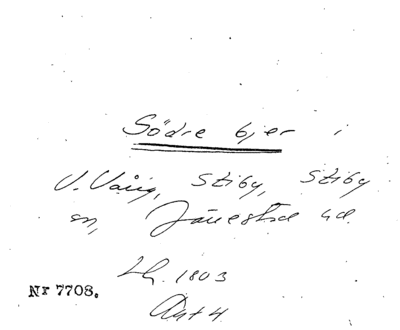 Södre bjer i
V. Våig, Stiby, Stiby
sn, Järrestad hd.
Lh. 1803
Akt 4
Nr 7708.